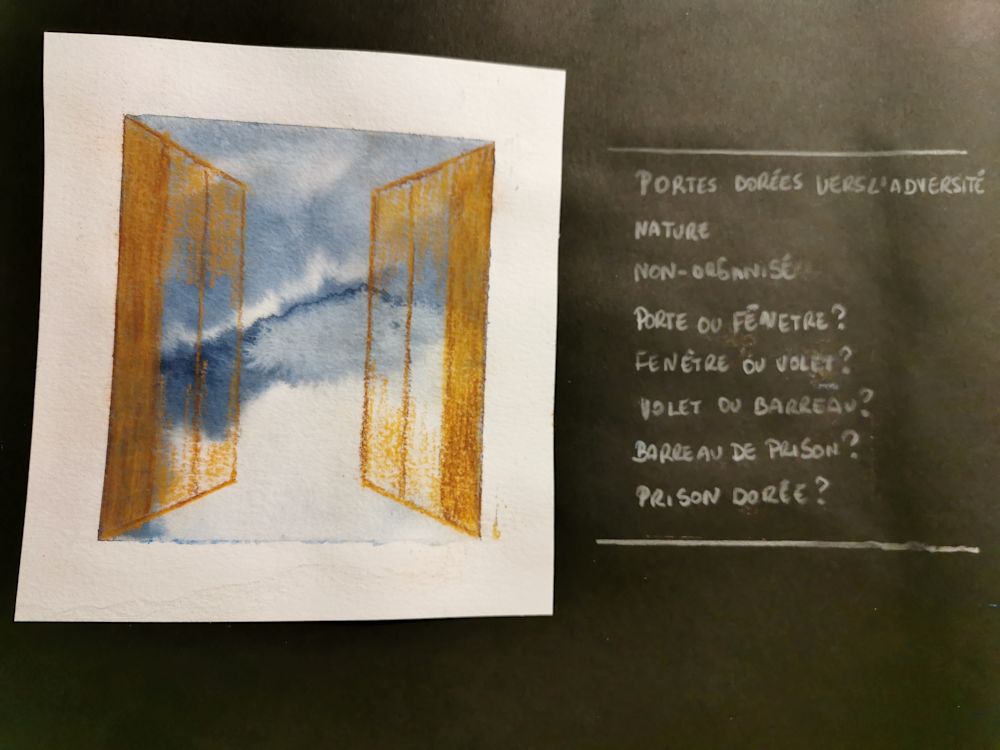 PORTES DORÉES VERS L'ADVERSITÉ
NATURE
NON-ORGANISÉ
PORTE OU FÊNETRE?
FENÊTRE OU VOLET?
VOLET OU BARREAU?
BARREAU DE PRISON?
PRISON DORÉE?